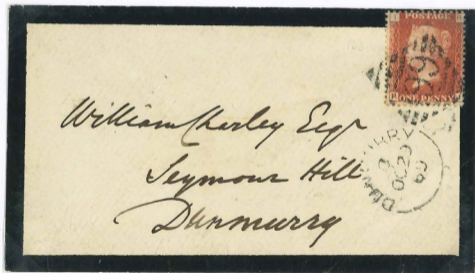 POSTAGE
ONE PENNY
William Charley Esqr
Seymour Hill
Dunmurry
DUNMURRY
OC 29